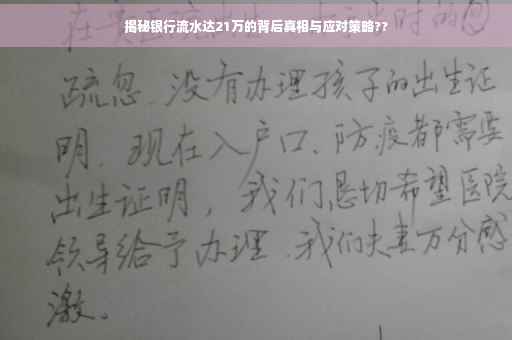 揭秘银行流水达21万的背后真相与应对策略??
疏忽.没有办理孩子的出生证
明.现在入户口、防疫都需要
出生证明，我们恳切希望医院
领导给予办理.我们夫妻万分感
激。